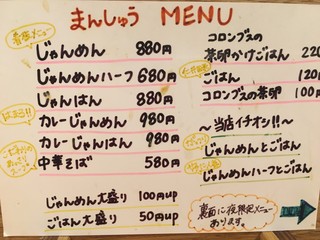 まんしゅう MENU
看板メニュー
じゃんめん 880円
じゃんめんハーフ 680円
じゃんはん 880円
カレーじゃんめん 980円
カレーじゃんはん 980円
中華そば 580円
じゃんめん大盛り 100円up
ごはん大盛り 50円up
コロンブスの
茶卵かけごはん 220
ごはん 120円
コロンブスの茶卵 100円
〜当店イチオシ!!〜
じゃんめんとごはん
じゃんめんハーフとごはん
裏面に夜限定メニュー
あります。